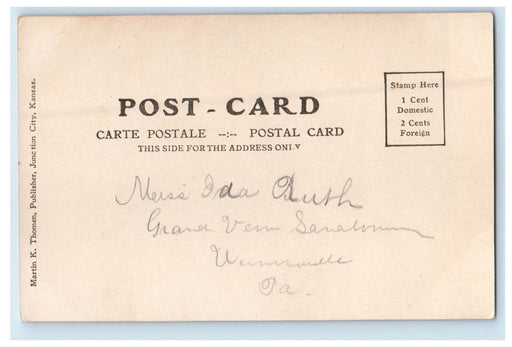 Martin K. Thomen, Publisher, Junction City, Kansas.
POST - CARD
CARTE POSTALE --:-- POSTAL CARD
THIS SIDE FOR THE ADDRESS ONLY
Stamp Here
1 Cent
Domestic
2 Cents
Foreign
Miss Ida Ruth
Grand View Sanatorium
Wernersville
Pa.